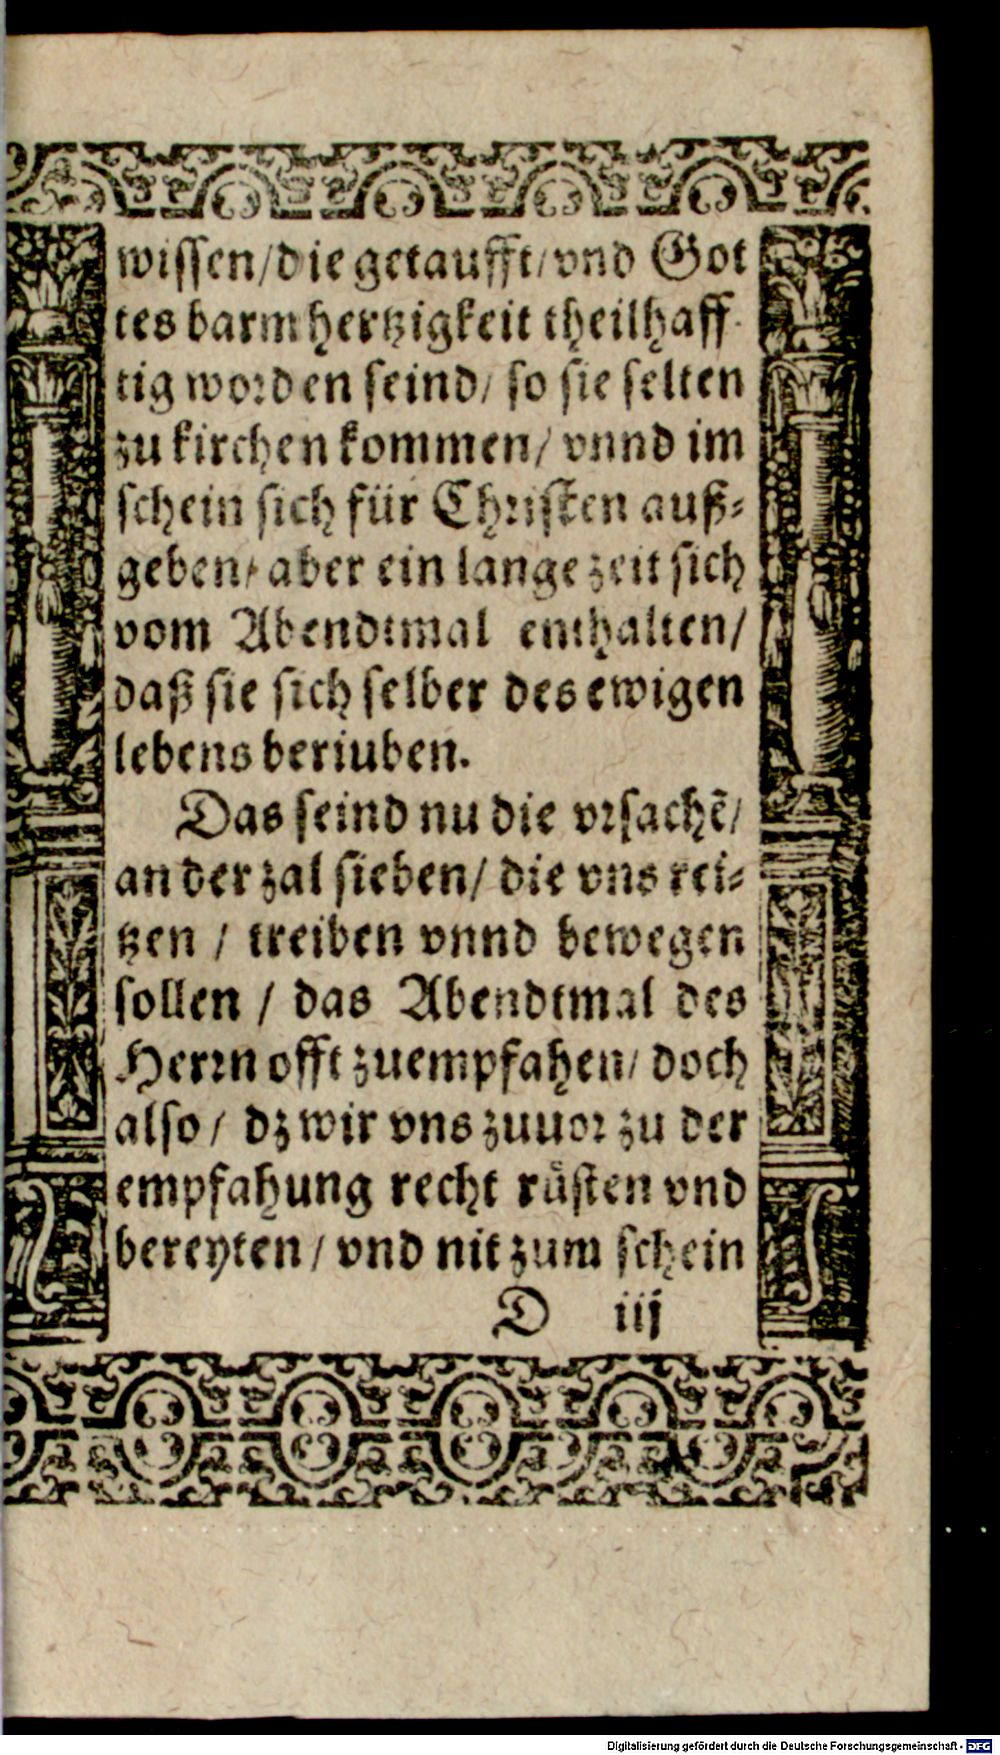 wissen/die getaufft/vnd Got
tes barmhertzigkeit theilhaff
tig worden seind/ so sie selten
zu kirchen kommen/ vnnd im
schein sich für Christen auß⸗
geben/ aber ein lange zeit sich
vom Abendtmal enthalten/
daß sie sich selber des ewigen
lebens beriuben.
Das seind nu die vrsachẽ/
an der zal sieben/ die vns rei⸗
tzen / treiben vnnd bewegen
sollen / das Abendtmal des
Herrn offt zuempfahen/ doch
also/ dz wir vns zuuor zu der
empfahung recht rüsten vnd
bereyten / vnd nit zum schein
D iij
Digitalisierung gefördert durch die Deutsche Forschungsgemeinschaft - DFG